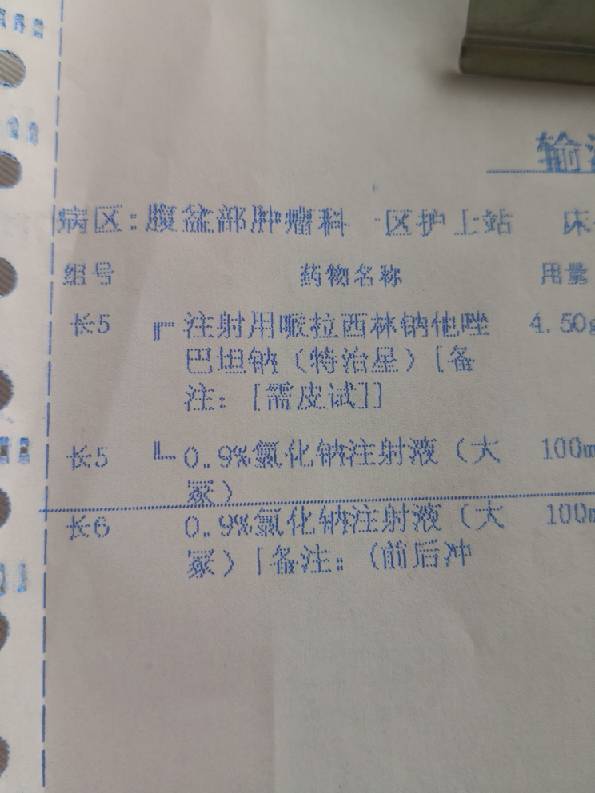 输
病区：腹盆部肿瘤科 一区护士站 床
组号 药物名称 用量
长5 注射用哌拉西林钠他唑 4.50g
巴坦钠（特治星）[备
注：[需皮试]]
长5 0.9%氯化钠注射液（大 100m
冢）
长6 0.9%氯化钠注射液（大 100m
冢）[备注：（前后冲